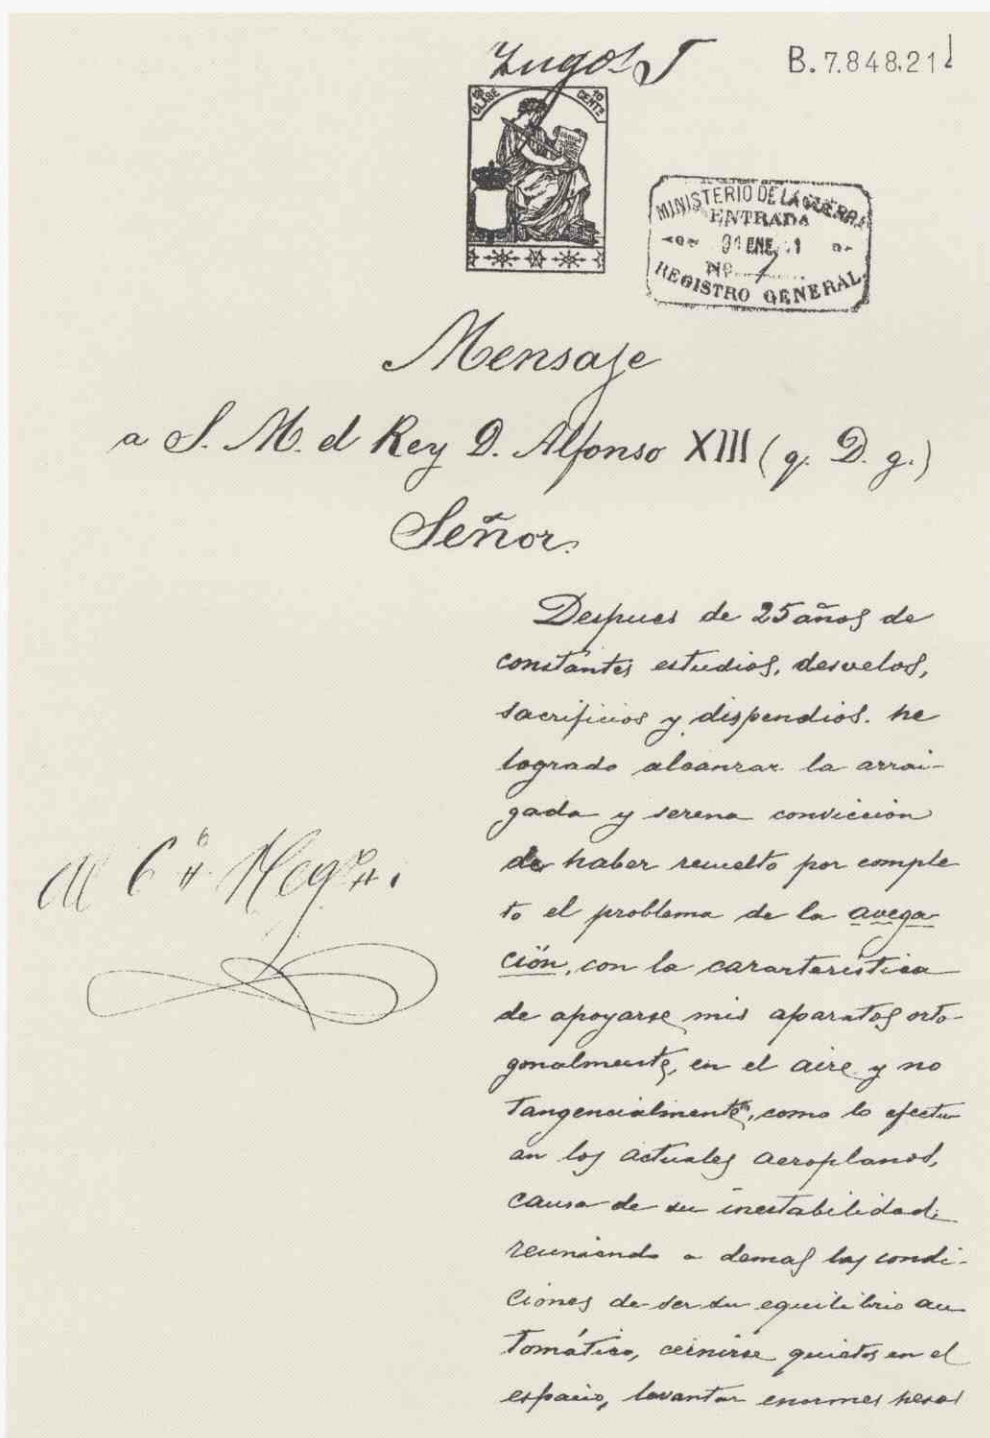 B.7.848.21
CLASE
10 CENTS
MINISTERIO DE LA GUERRA
ENTRADA
31 ENE. 1
Nº 7
REGISTRO GENERAL
Mensaje
a S. M. el Rey D. Alfonso XIII (q. D. g.)
Señor.
Despues de 25 años de
constantes estudios, desvelos,
sacrificios y dispendios. he
logrado alcanzar la arrai-
gada y serena convicción
de haber resuelto por comple
to el problema de la avega-
ción, con la caracteristica
de apoyarse mis aparatos orto-
gonalmente, en el aire y no
tangencialmente, como lo efectu
an los actuales aeroplanos,
causa de su inestabilidad;
reuniendo a demas las condi-
ciones de ser su equilibrio au
tomático, ceinirse quietos en el
espacio, levantar enormes pesos
Al 6º Negº.